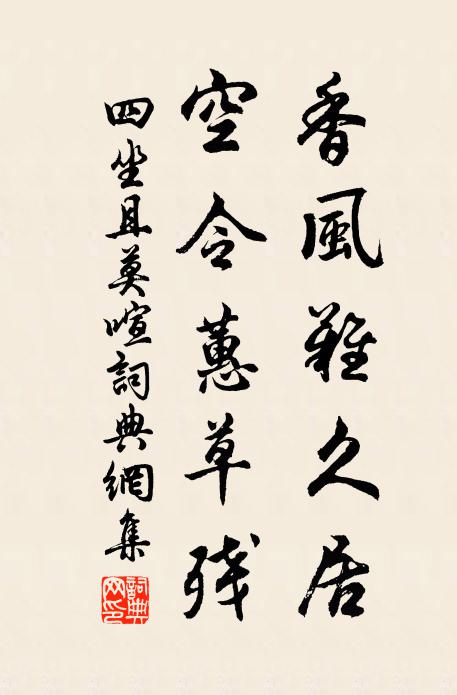 香風難久居
空令蕙草残
四坐且莫喧詞典網集
詞典網印